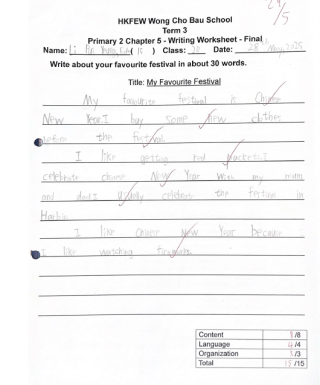 HKFEW Wong Cho Bau School
Term 3
Primary 2 Chapter 5 - Writing Worksheet - Final
Name: Li ( 15 ) Class: Date: 28 May, 2025
Write about your favourite festival in about 30 words.
Title: My Favourite Festival
My favourite festival is Chinese
New Year. I buy some new clothes
before the festival.
I like getting red packets. I
celebrate chinese New Year with my mum
and dad. I usually celebrate the festival in
Harbin.
I like Chinese New Year because
I like watching
Content /8
Language 4/4
Organization /3
Total 15/15